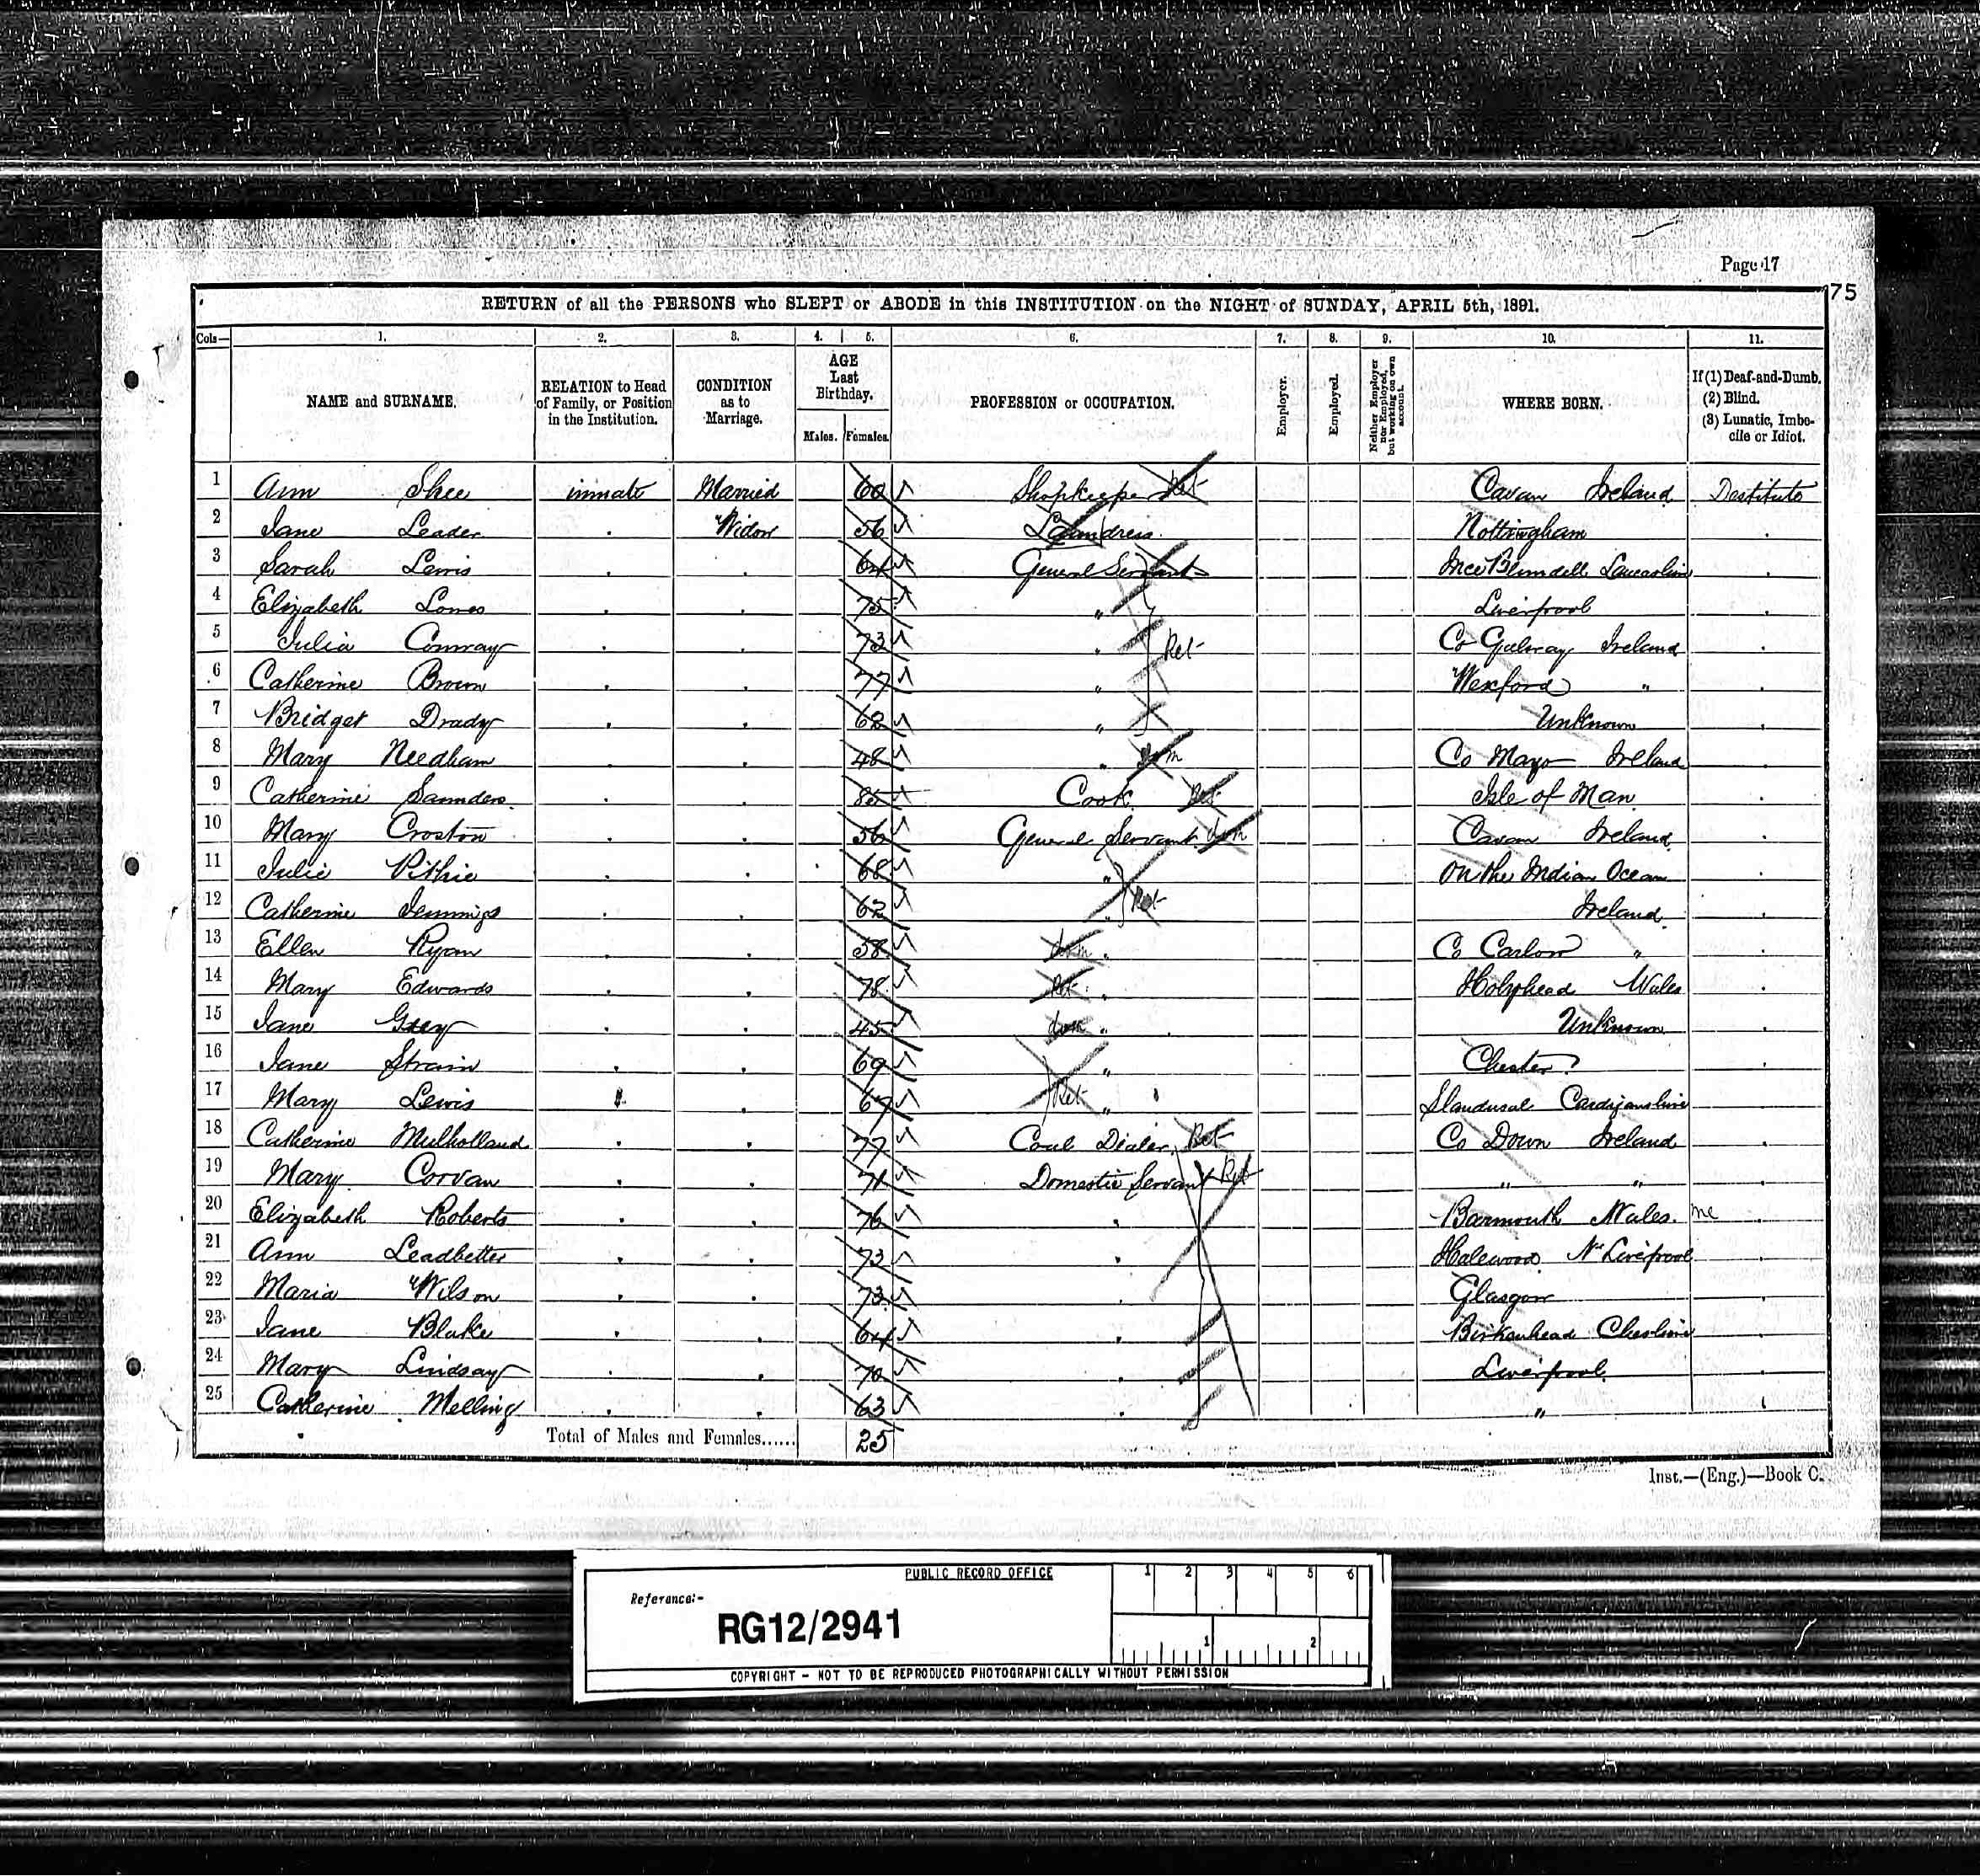 Page 17
75
RETURN of all the PERSONS who SLEPT or ABODE in this INSTITUTION on the NIGHT of SUNDAY, APRIL 5th, 1891.
Cols— 1. 2. 3. 4. 5. 6. 7. 8. 9. 10. 11.
NAME and SURNAME. RELATION to Head of Family, or Position in the Institution. CONDITION as to Marriage. AGE Last Birthday. Males. Females. PROFESSION or OCCUPATION. Employer. Employed. Neither Employer nor Employed, but working on own account. WHERE BORN. If (1) Deaf-and-Dumb. (2) Blind. (3) Lunatic, Imbecile or Idiot.
1 Ann Shee inmate Married 60 Shopkeeper Ret Cavan Ireland Destitute
2 Jane Leader . Widow 56 Laundress Nottingham .
3 Sarah Lewis . . 64 General Servant Ince Blundell Lancashire .
4 Elizabeth Lomas . . 75 " Liverpool .
5 Julia Conway . . 73 " Ret Co Galway Ireland .
6 Catherine Brown . . 77 " Wexford " .
7 Bridget Drady . . 62 " Unknown .
8 Mary Needham . . 48 " Dom Co Mayo Ireland .
9 Catherine Saunders . . 85 Cook Ret Isle of Man .
10 Mary Croston . . 56 General Servant dom Cavan Ireland .
11 Julie Pithie . . 68 " On the Indian Ocean .
12 Catherine Jennings . . 62 " Ret Ireland .
13 Ellen Ryan . . 58 dom " Co Carlow " .
14 Mary Edwards . . 78 Ret " Holyhead Wales .
15 Jane Grey . . 45 dom " Unknown .
16 Jane Strain . . 69 " Chester? .
17 Mary Lewis . . 67 Ret " Cardiganshire .
18 Catherine Mulholland . . 77 Coal Dealer Ret Co Down Ireland .
19 Mary Corvan . . 71 Domestic Servant Ret " " .
20 Elizabeth Roberts . . 76 . Barmouth Wales. Me .
21 Ann Leadbetter . . 73 . Halewood Nr Liverpool .
22 Maria Wilson . . 73 . Glasgow .
23 Jane Blake . . 64 . Birkenhead Cheshire .
24 Mary Lindsay . . 70 . Liverpool .
25 Catherine Melling . . 63 . " .
Total of Males and Females...... 25
Inst.—(Eng.)—Book C.
PUBLIC RECORD OFFICE 1 2 3 4 5 6
Reference:-
RG12/2941 1 2
COPYRIGHT - NOT TO BE REPRODUCED PHOTOGRAPHICALLY WITHOUT PERMISSION